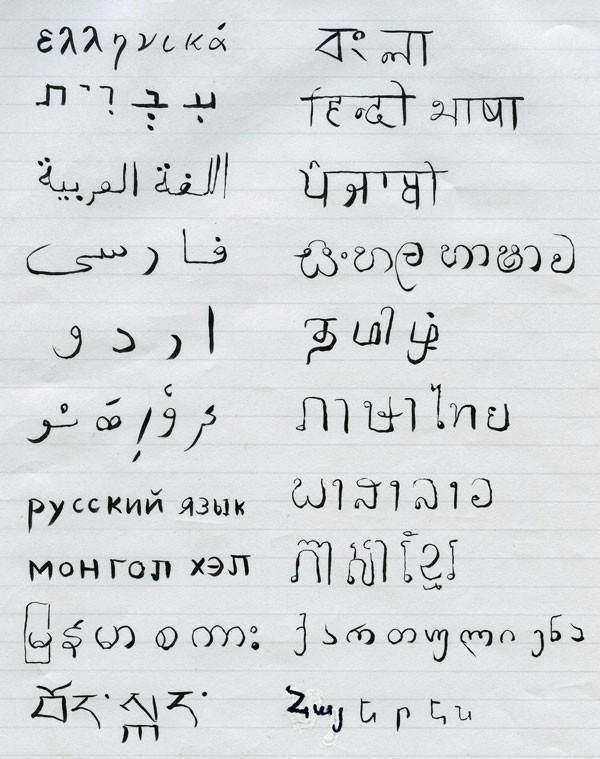 ελληνικά
עִבְרִית
اللغة العربية
فارسی
اردو
русский язык
монгол хэл
မြန်မာစကား
བོད་སྐད་
বাংলা
हिन्दी भाषा
ਪੰਜਾਬੀ
සිංහල භාෂාව
தமிழ்
ภาษาไทย
ພາສາລາວ
ភាសាខ្មែរ
ქართული ენა
Հայերեն